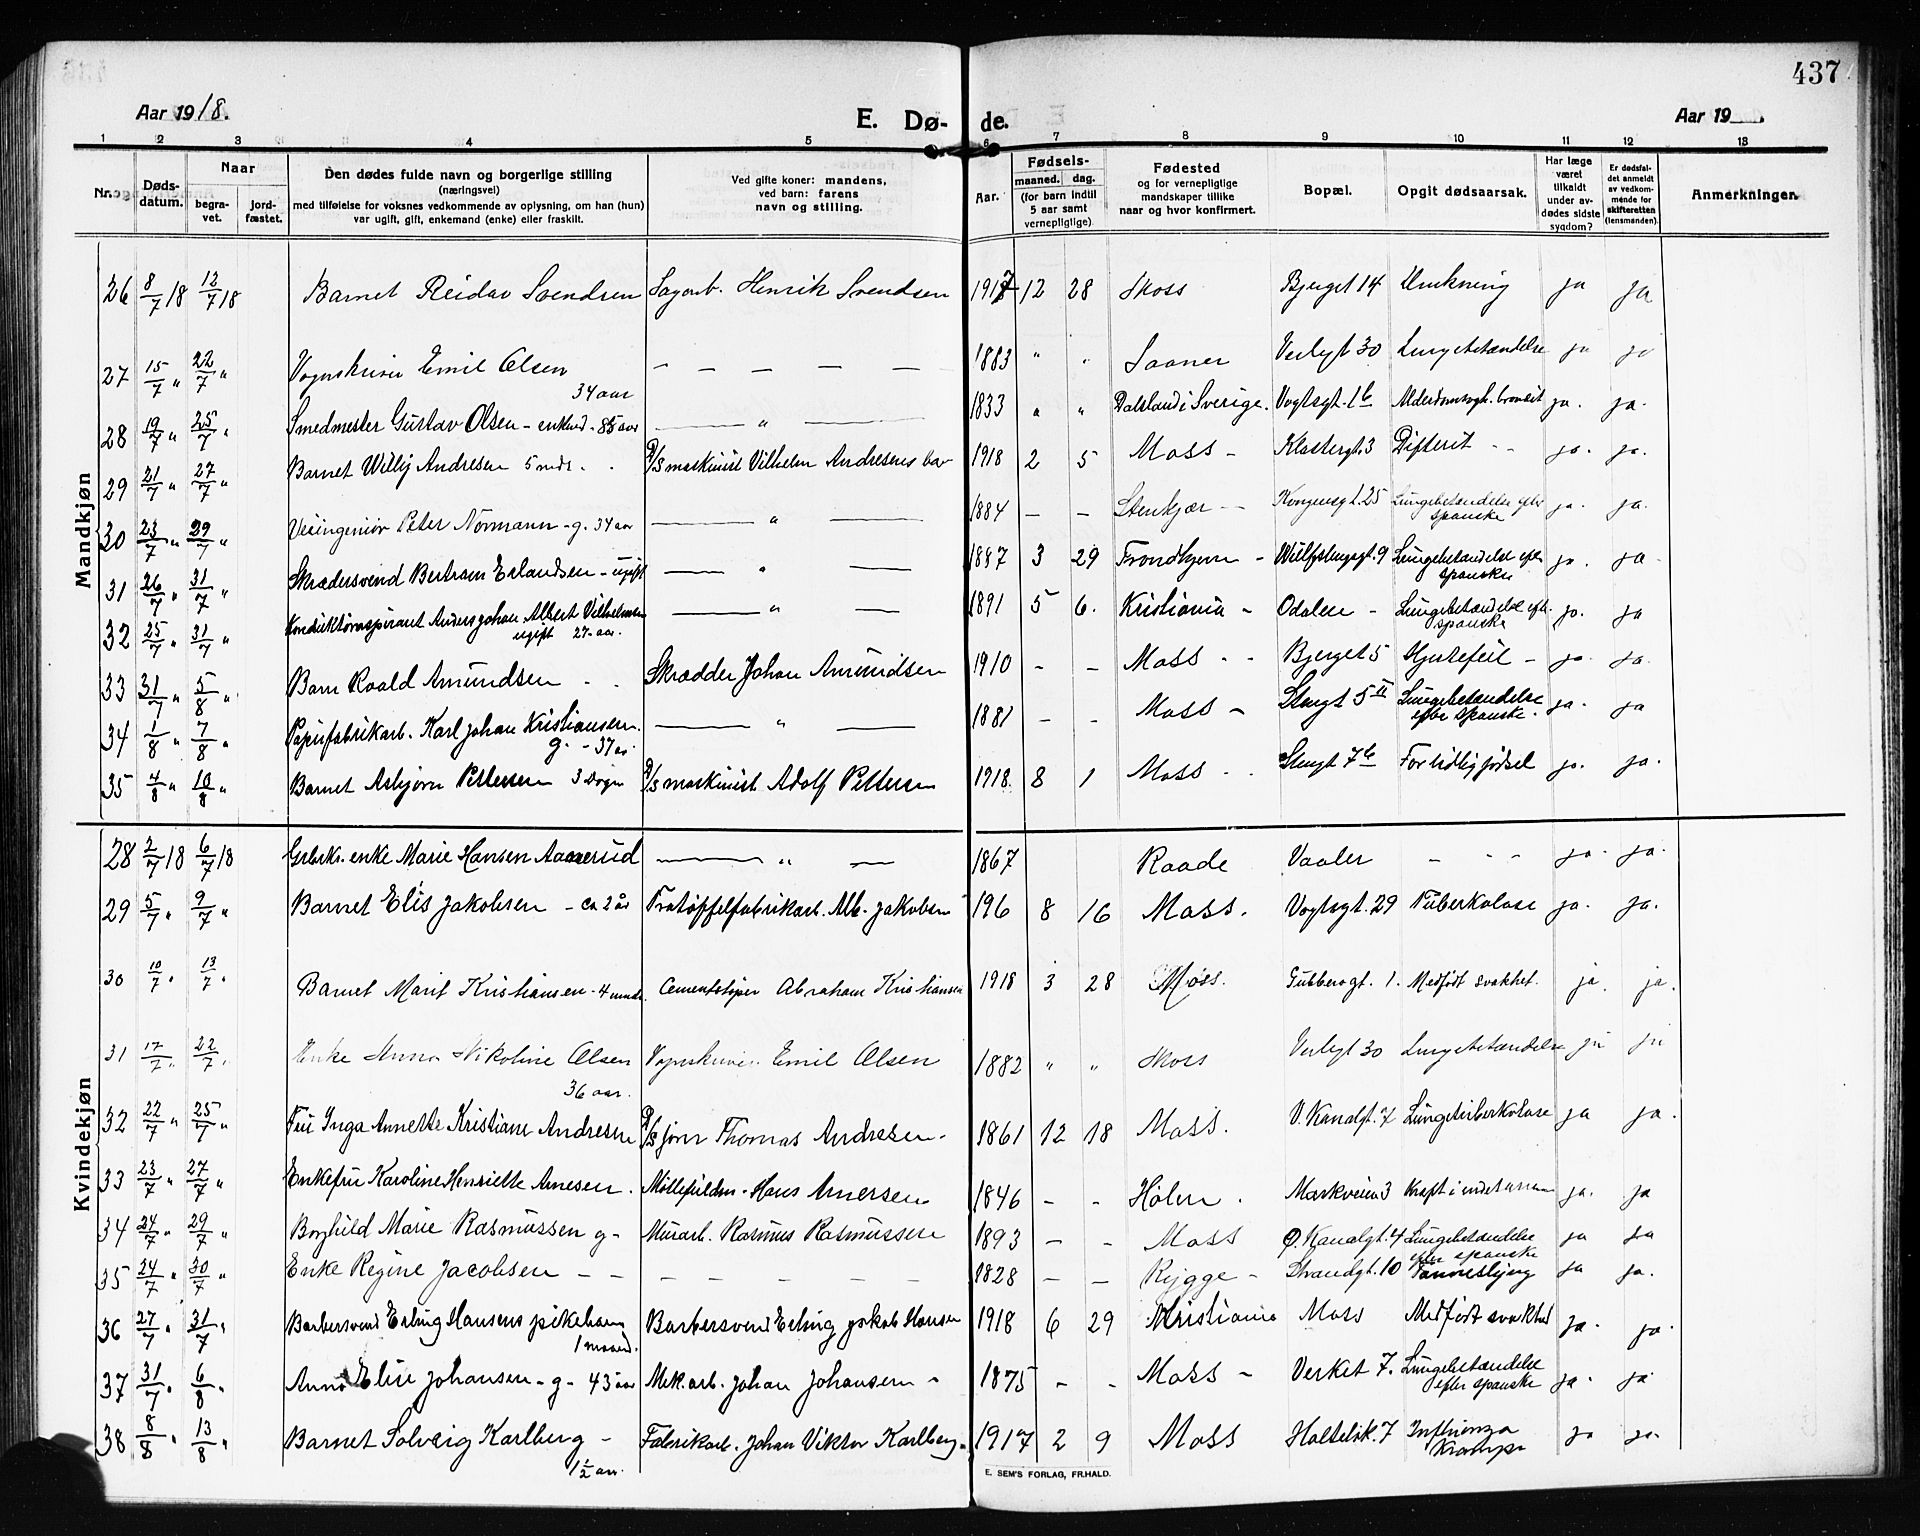 437
Aar 1918.
E. Dø- de.
Aar 19
1 2 3 4 5 6 7 8 9 10 11 12 13
Nr.
Døds-datum.
Naar
begra-vet.
jord-fæstet.
Den dødes fulde navn og borgerlige stilling
(næringsvei)
med tilføielse for voksnes vedkommende av oplysning, om han (hun)
var ugift, gift, enkemand (enke) eller fraskilt.
Ved gifte koner: mandens,
ved barn: farens
navn og stilling.
Aar.
Fødsels-
maaned. dag.
(for barn indtil
5 aar samt
vernepligtige)
Fødested
og for vernepligtige
mandskaper tillike
naar og hvor konfirmert.
Bopæl.
Opgit dødsaarsak.
Har læge
været
tilkaldt
under av-
dødes sidste
sygdom?
Er dødsfal-
det anmeldt
av vedkom-
mende for
skifteretten
(lensmanden).
Anmerkninger.
Mandkjøn
26 8/7 18 12/7 18 Barnet Reidar Svendsen Henrik Svendsen 1917 12 28 Moss Bjerget 14 ja ja
27 15/7 " 22/7 " Emil Olsen — — — — — 1883 " " Saaner Verlgt 30 Lungebetændelse ja ja
34 aar
28 19/7 " 25/7 " Smedmester Gustav Olsen - enkmd - 85 aar — " — 1833 " " Dalsland i Sverige. Vogtsgt. 16 ja. ja.
29 21/7 " 27/7 " Barnet Willy Andresen 5 mdr. D/S maskinist Vilhelm Andresens 1918 2 5 Moss - Klostergt. 3 Difterit ja. ja.
30 23/7 " 29/7 " Veiingeniør Peter Normann - g. 34 aar — " — 1884 — — Stenkjær Kongensgt. 25 Lungebetændelse efter
spanske ja. ja.
31 26/7 " 31/7 " Skrædersvend Bertram Erlandsen - ugift — " — 1887 3 29 Trondhjem - 9 Lungebetændelse efter
spanske ja. ja
32 25/7 " 31/7 " Konduktøraspirant Anders Johan Albert Vilhelmsen — " — 1891 5 6. Kristiania - Odalen - Lungebetændelse eft.
spanske ja. ja
ugift 27 aar.
33 31/7 " 5/8 " Barn Roald Amundsen Skrædder Johan Amundsen 1910 - - Moss Bjerget 5 Hjertefeil - ja. ja.
34 1/8 " 7/8 " Papirfabrikarb. Karl Johan Kristiansen. — " — 1881 - - Moss - Stengt 5 II Lungebetændelse
efter spanske. ja. ja
g. - 37 aar
35 4/8 " 10/8 " Barnet Asbjørn Pettersen 3 Døgn D/S maskinist Adolf Pettersen 1918. 8 1 Moss Stengt 7 b For tidlig fødsel ja. ja.
Kvindekjøn
28 2/7 18 6/7 18 Grbrk. enke Marie Hansen Aanerud — " — 1867 Raade Vaaler - " " ja. ja.
29 5/7 " 9/7 " Barnet Elis Jakobsen - ca 2 år Trætøffelfabrikarb. Alb. Jakobsen 196 8 16 Moss. Vogtsgt. 29 Tuberkolose ja. ja.
30 10/7 " 13/7 " Barnet Marit Kristiansen - 4 mndr. Cementstøper Abraham Kristiansen 1918 3 28 Moss. Gubberogt. 1. Medfødt svakhet. ja. ja.
31 17/7 " 22/7 " Enke Anna Nikoline Olsen Emil Olsen 1882 " " Moss Verlgt 30 Lungebetændelse ja ja
36 aar.
32 22/7 " 25/7 " Fru Inga Annette Kristiane Andresen D/S Thomas Andresen. 1861 12 18 Moss. V. Kanalgt. 7 Lungetuberkolose ja ja.
33 23/7 " 27/7 " Enkefru Karoline Henriette Arnesen. Hans Arnesen 1846 - - Hølen. Markveien 3 Kræft i ja. ja
34 24/7 " 29/7 " Borghild Marie Rasmussen g- Murarb. Rasmus Rasmussen 1893 - - Moss Ø. Kanalgt. 4 Lungebetændelse
efter spanske ja ja
35 24/7 " 30/7 " Enke Regine Jacobsen - - — — — — — 1828 - - Rygge - Strandgt. 10 ja ja.
36 27/7 " 31/7 " Barbersvend Erling Hansens pikebarn Barbersvend Erling Jakob Hansen 1918 6 29 Kristiania Moss Medfødt svakhed ja. ja.
1 maaned.
37 31/7 " 6/8 " Anna Elise Johansen - g - 43 aar Mek. arb. Johan Johansen - 1875 - - Moss - Verket 7. Lungebetændelse
efter spanske ja. ja
38 8/8 " 13/8 " Barnet Solveig Karlberg - Fabrikarb. Johan Viktor Karlberg. 1917 2 9 Moss 7 Influenza
Krampe ja ja.
1 1/2 aar.
E. SEM'S FORLAG, FR.HALD.